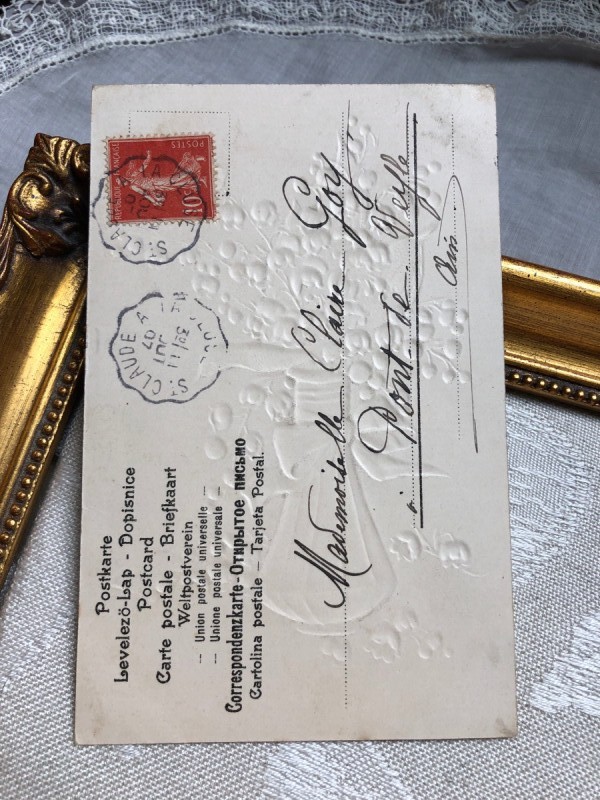 Postkarte
Levelező-Lap - Dopisnice
Postcard
Carte postale - Briefkaart
Weltpostverein
— Union postale universelle —
— Unione postale universale —
Correspondenzkarte - Открытое письмо
Cartolina postale — Tarjeta Postal.
POSTES
10c
REPUBLIQUE FRANÇAISE
ST CLAUDE
ST CLAUDE
11
JUT
07
Mademoiselle Claire Goy
Pont de Veyle
Ain